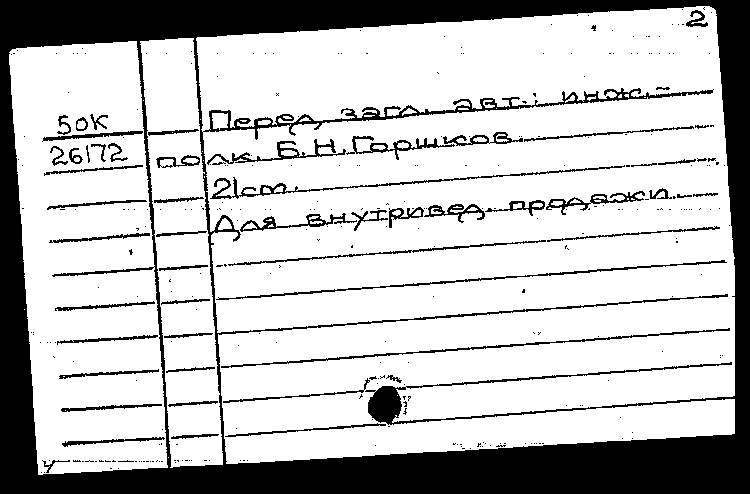 2
50К Перед загл. авт.: инж.-
26172 полк. Б.Н.Горшков.
21cm.
Для внутривед. продажи.